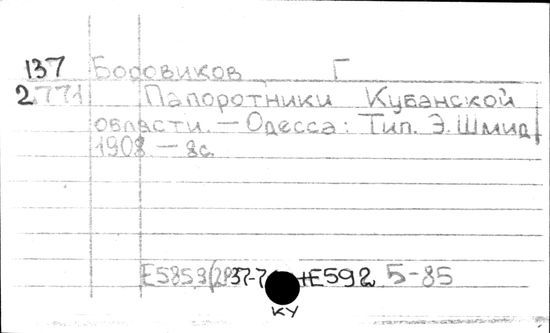 137 Боровиков Г
2771 Папоротники Кубанской
области. — Одесса: Тип. Э. Шмид
1908 — 8с.
Е585.3(2Р37-7 +Е592 5-85
КУ